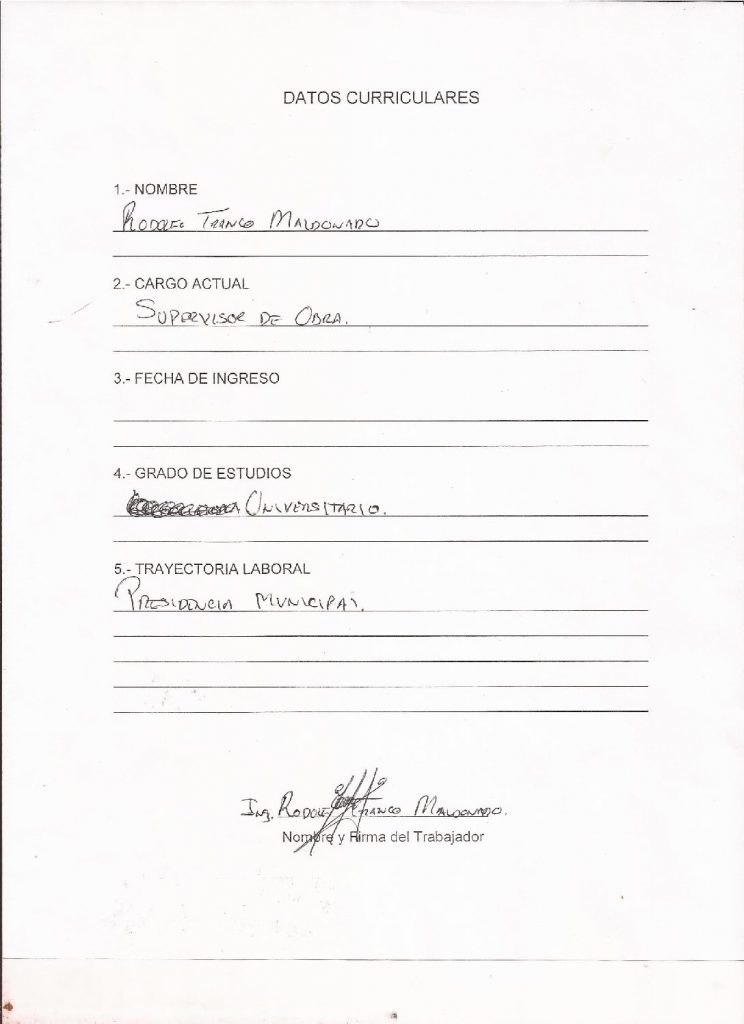 DATOS CURRICULARES
1.- NOMBRE
RODOLFO FRANCO MALDONADO
2.- CARGO ACTUAL
SUPERVISOR DE OBRA.
3.- FECHA DE INGRESO
4.- GRADO DE ESTUDIOS
UNIVERSITARIO.
5.- TRAYECTORIA LABORAL
PRESIDENCIA MUNICIPAL.
Ing. RODOLFO FRANCO MALDONADO.
Nombre y Firma del Trabajador